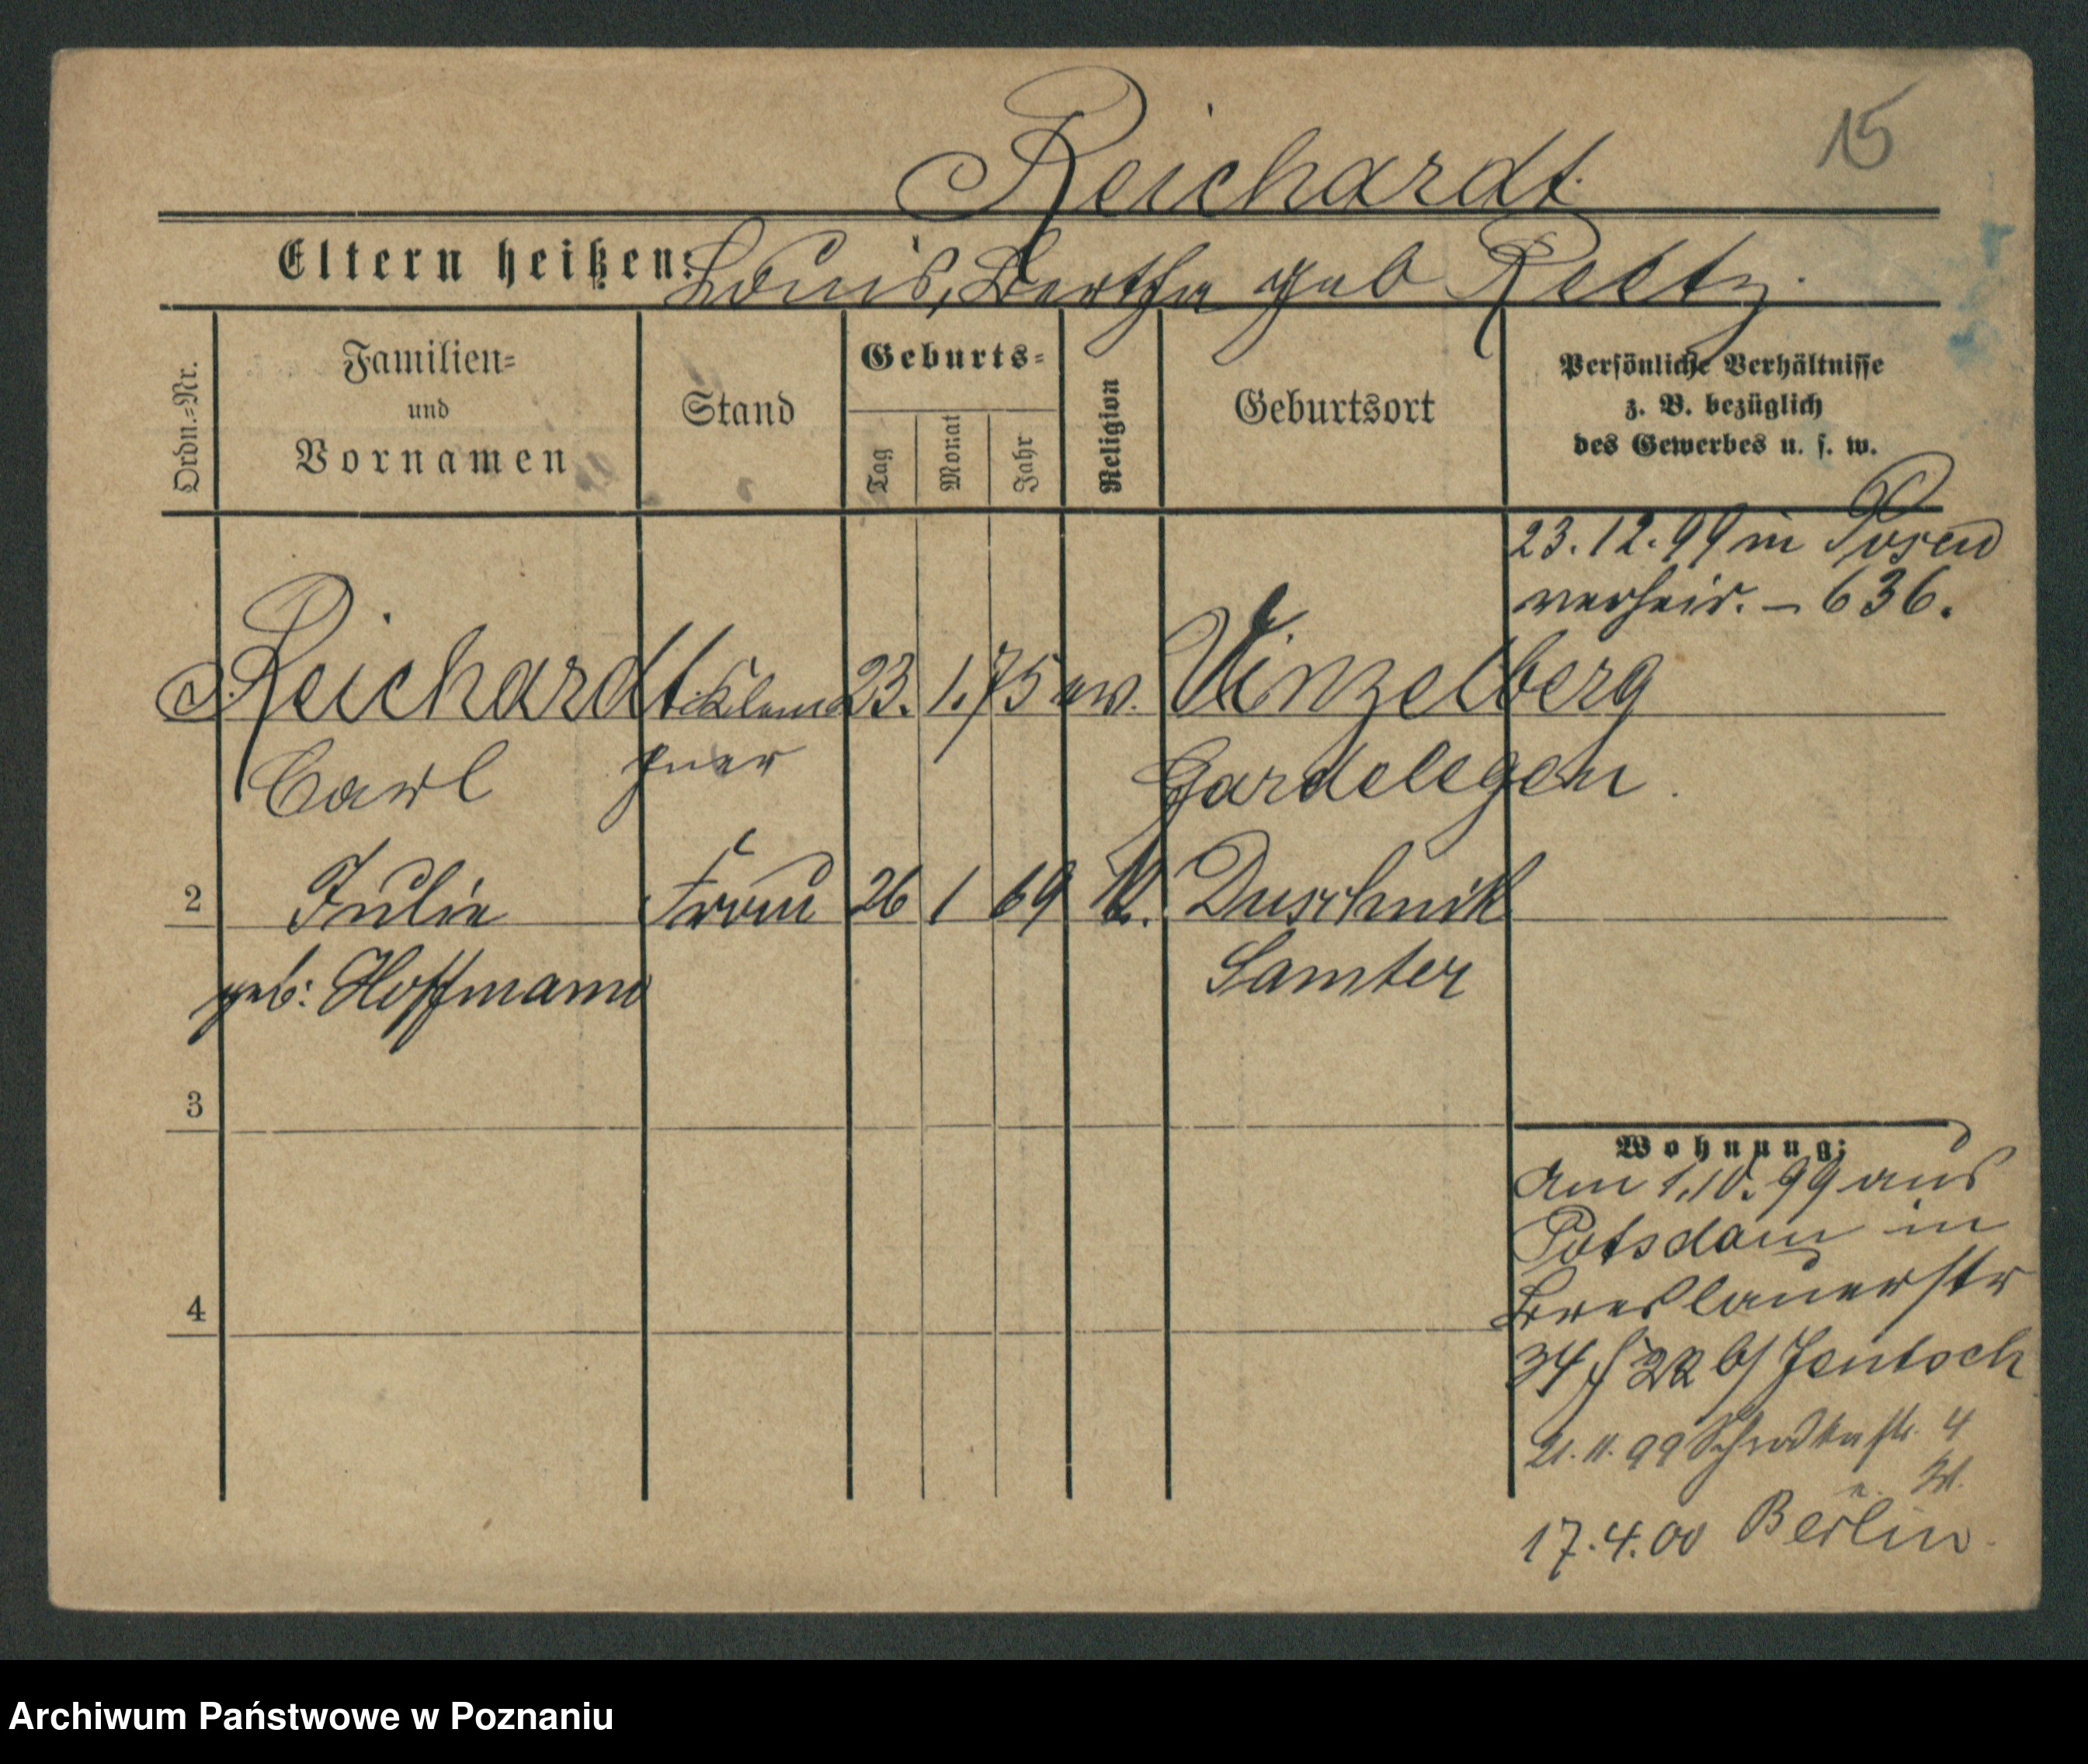 15
Reichardt.
Eltern heißen: Louis, Bertha geb Reetz.
Ordn.=Nr.
Familien=
und
Vornamen
Stand
Geburts=
Tag
Monat
Jahr
Religion
Geburtsort
Persönliche Verhältnisse
z. B. bezüglich
des Gewerbes u. s. w.
23.12.99 in Posen
verheir. – 636.
Reichardt Klemp 23. 1. 75 ew. Vinzelberg
Carl fner Gardelegen.
2 Julie Frau 26 1 69 K. Duschnik
geb: Hoffmann Samter
3
4
Wohnung:
Am 1.10.99 aus
Potsdam in
Breslauerstr
34 b/ Jentsch
21.11.99 Schrodkastr. 4
17.4.00 Berlin.
Archiwum Państwowe w Poznaniu